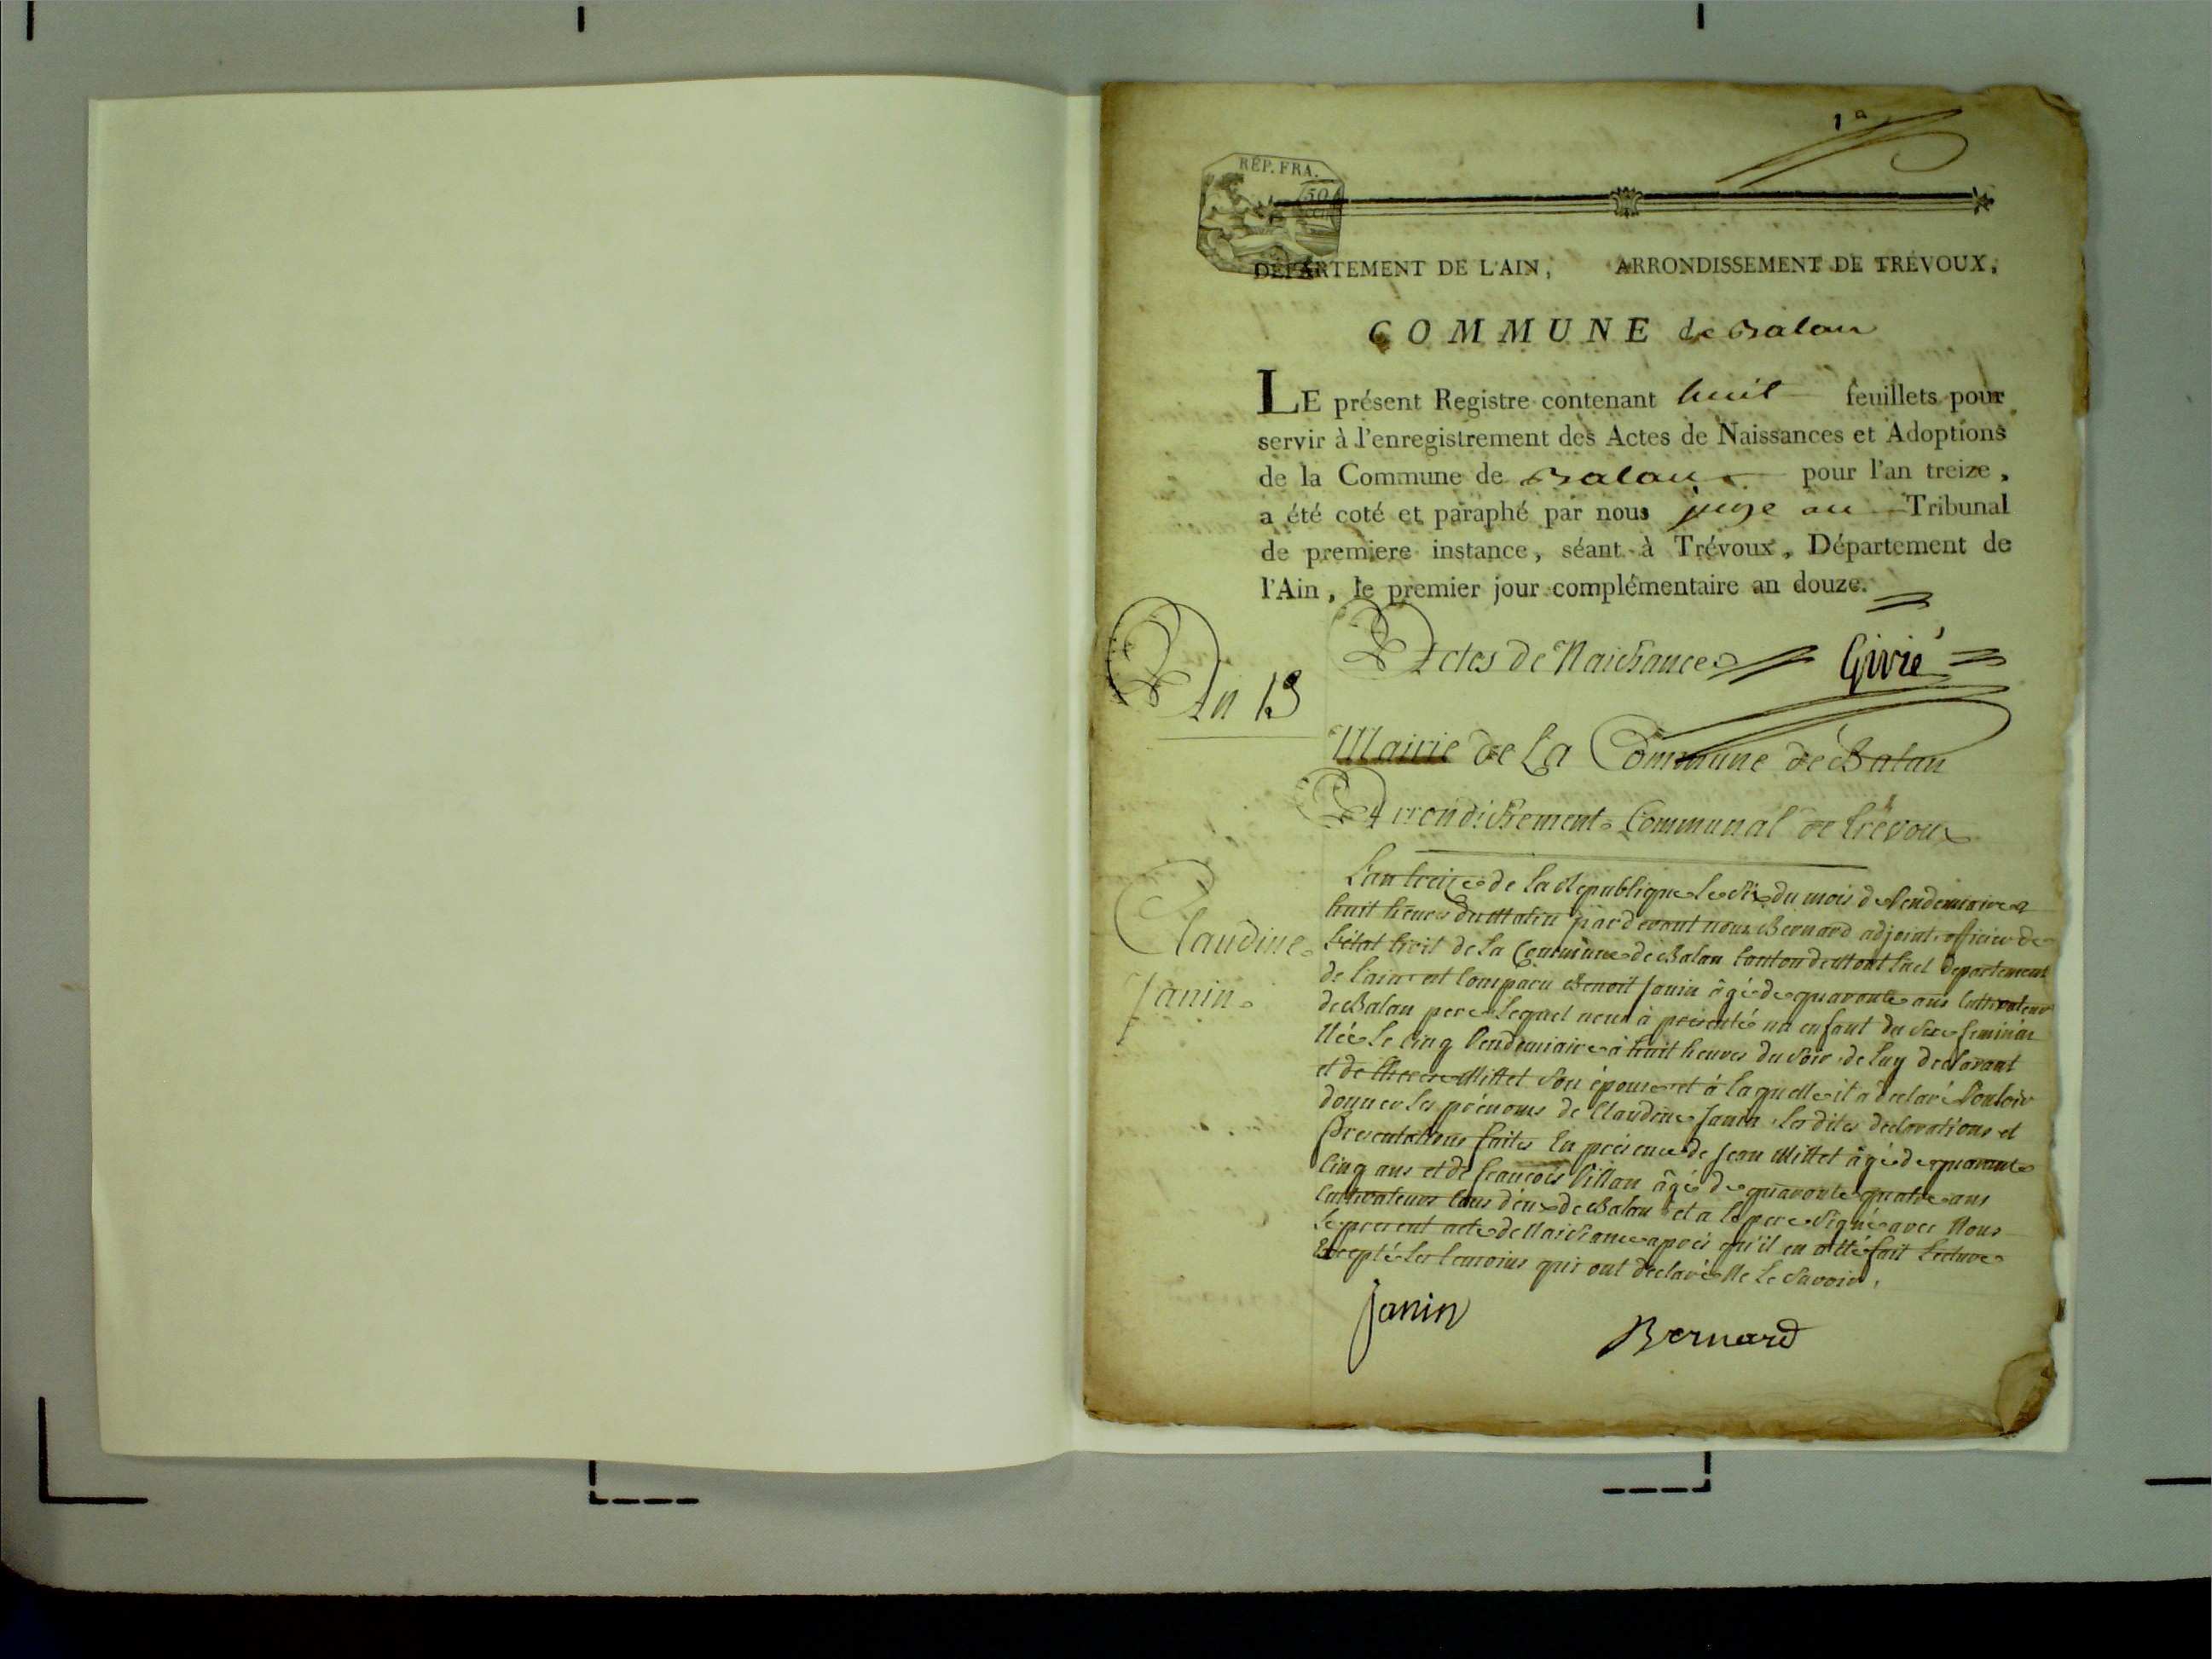 1a
RÉP. FRA.
50
DÉPARTEMENT DE L'AIN, ARRONDISSEMENT DE TRÉVOUX,
COMMUNE de Balan
LE présent Registre contenant huit feuillets pour
servir à l'enregistrement des Actes de Naissances et Adoptions
de la Commune de Balan pour l'an treize,
a été coté et paraphé par nous juge au Tribunal
de premiere instance, séant à Trévoux, Département de
l'Ain, le premier jour complémentaire an douze.
Actes de Naissances Givré
An 13
Mairie de La Commune de Balan
Arrondissement Communal de Trévoux
Claudine
Janin
L'an treize de la Republique le Six du mois de Vendemiaire a
huit heures du Matin pardevant nous Bernard adjoint officier de
L'état Civil de la Commune de Balan Canton de Montluel departement
de l'ain est Comparu Benoit Janin âgé de quarante ans Cultivateur
de Balan pere Lequel nous à présenté un enfant du Sexe feminin
Née Le Cinq Vendemiaire à huit heures du Soir de luy declarant
et de Millet Son épouse et à laquelle il a declaré Vouloir
donner les prénoms de Claudine Janin Lesdites declarations et
Presentations faites En présence de Jean Millet âgé de quarante
Cinq ans et de françois Villan âgé de quarante quatre ans
Cultivateurs tous deux de Balan et a le pere Signé avec Nous
Le present acte de Naissance après qu'il en a été fait Lecture
Excepté Les temoins qui ont declaré Ne Le Savoir.
Janin
Bernard